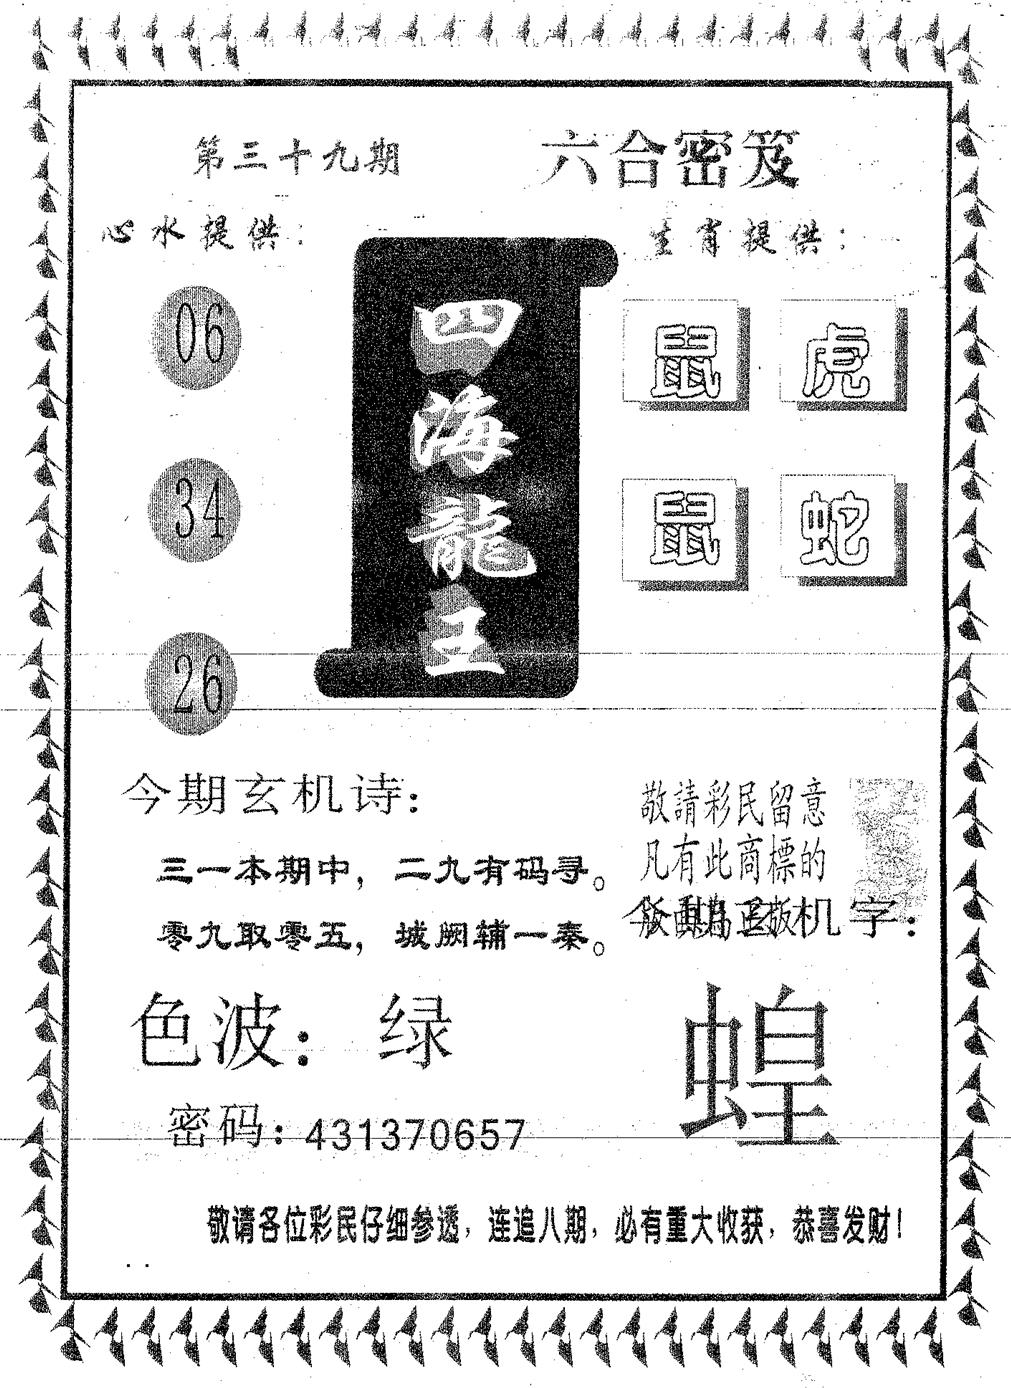 第三十九期
六合密笈
心水提供：
生肖提供：
06
34
26
四海龍王
鼠 虎
鼠 蛇
今期玄机诗：
三一本期中，二九有码寻。
零九取零五，城阙辅一秦。
敬請彩民留意
凡有此商標的
机字：
色波：绿
蝗
密码：431370657
敬请各位彩民仔细参透，连追八期，必有重大收获，恭喜发财！